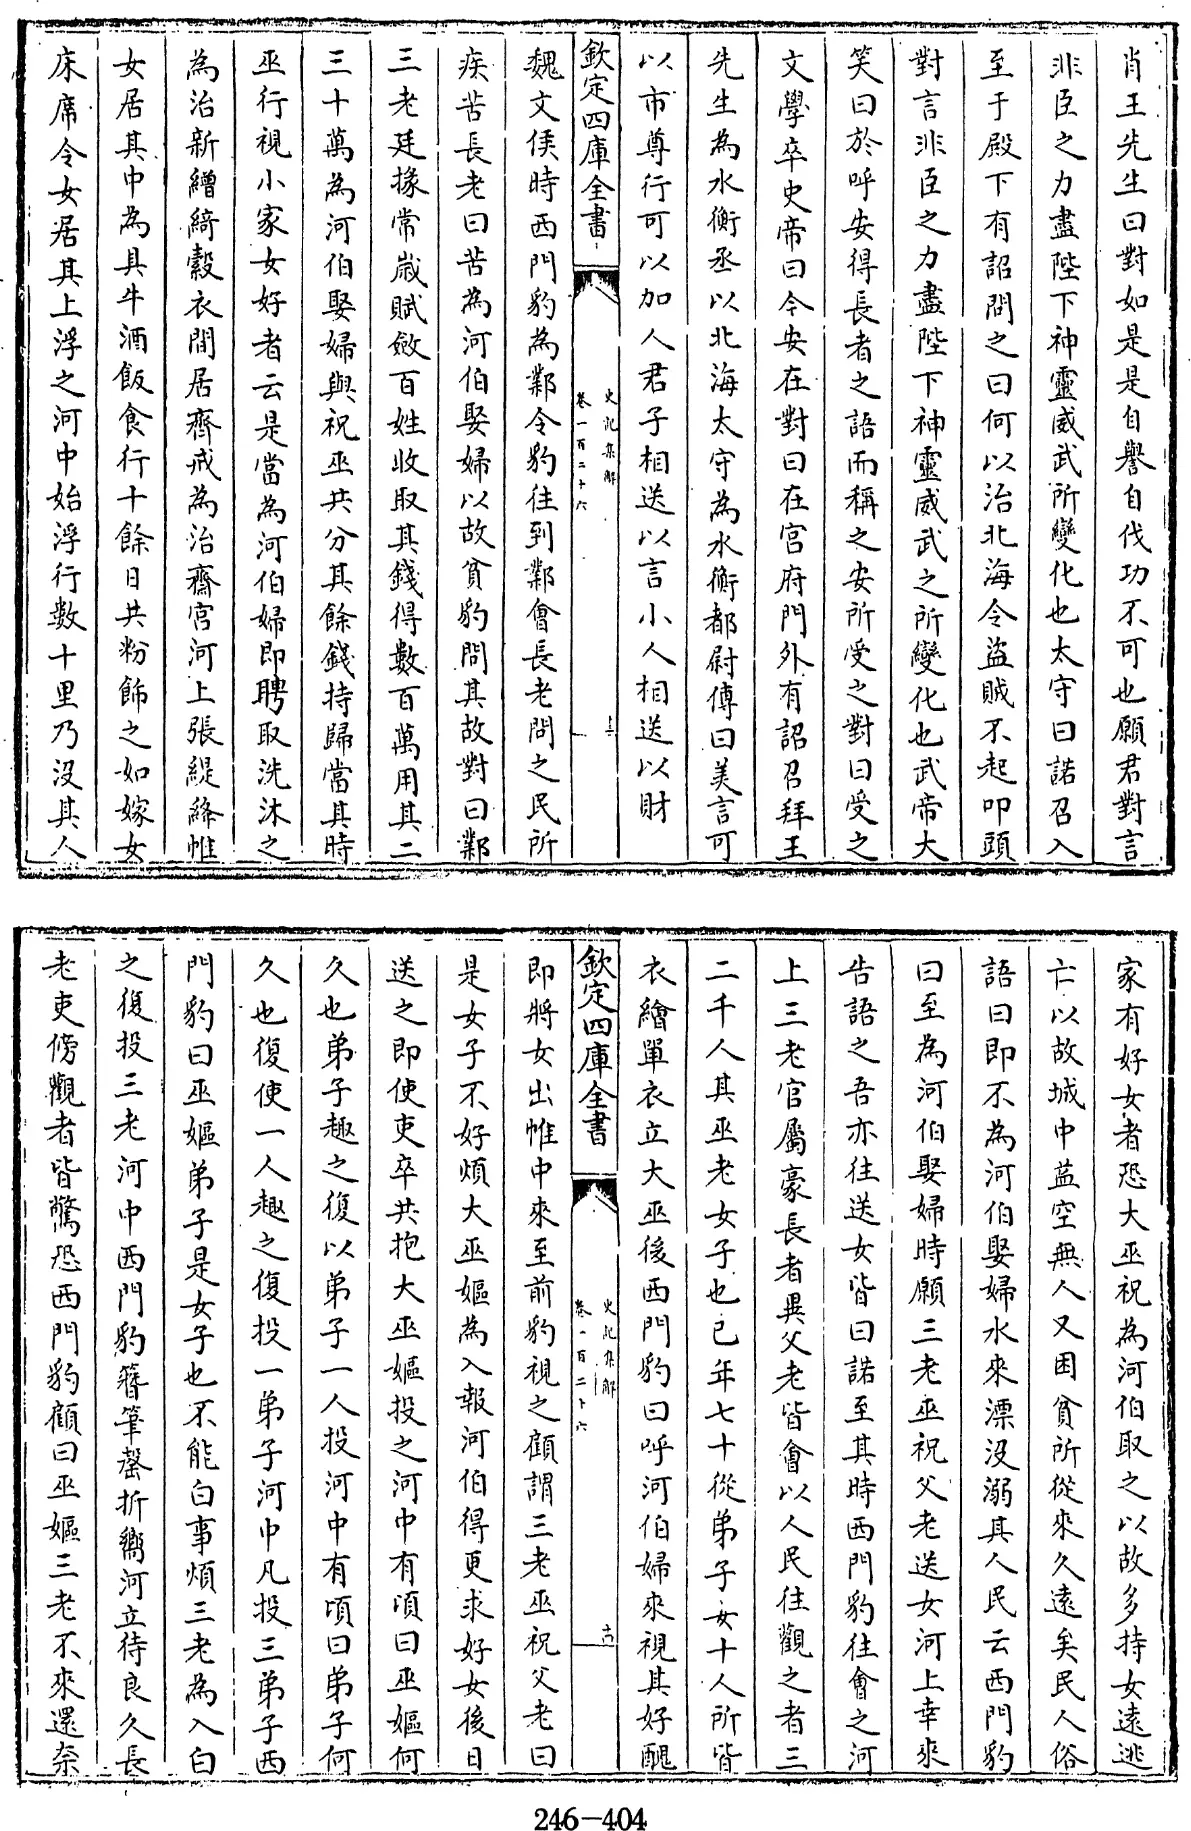 肖王先生曰對如是是自譽自伐功不可也願君對言
非臣之力盡陛下神靈威武所變化也太守曰諾召入
至于殿下有詔問之曰何以治北海令盜賊不起叩頭
對言非臣之力盡陛下神靈威武之所變化也武帝大
笑曰於呼安得長者之語而稱之安所受之對曰受之
文學卒史帝曰今安在對曰在宫府門外有詔召拜王
先生為水衡丞以北海太守為水衡都尉傳曰美言可
以市尊行可以加人君子相送以言小人相送以財
欽定四庫全書
史記集解
卷一百二十六
魏文侯時西門豹為鄴令豹往到鄴會長老問之民所
疾苦長老曰苦為河伯娶婦以故貧豹問其故對曰鄴
三老廷掾常嵗賦斂百姓收取其錢得數百萬用其二
三十萬為河伯娶婦與祝巫共分其餘錢持歸當其時
巫行視小家女好者云是當為河伯婦即聘取洗沐之
為治新繒綺縠衣間居齋戒為治齋宫河上張緹絳帷
女居其中為具牛酒飯食行十餘日共粉飾之如嫁女
床席令女居其上浮之河中始浮行數十里乃沒其人
家有好女者恐大巫祝為河伯取之以故多持女遠逃
亡以故城中益空無人又困貧所從來久遠矣民人俗
語曰即不為河伯娶婦水來漂沒溺其人民云西門豹
曰至為河伯娶婦時願三老巫祝父老送女河上幸來
告語之吾亦往送女皆曰諾至其時西門豹往會之河
上三老官屬豪長者里父老皆會以人民往觀之者三
二千人其巫老女子也已年七十從弟子女十人所皆
衣繒單衣立大巫後西門豹曰呼河伯婦來視其好醜
欽定四庫全書
史記集解
卷一百二十六
即將女出帷中來至前豹視之顧謂三老巫祝父老曰
是女子不好煩大巫嫗為入報河伯得更求好女後日
送之即使吏卒共抱大巫嫗投之河中有頃曰巫嫗何
久也弟子趣之復以弟子一人投河中有頃曰弟子何
久也復使一人趣之復投一弟子河中凡投三弟子西
門豹曰巫嫗弟子是女子也不能白事煩三老為入白
之復投三老河中西門豹簪筆罄折嚮河立待良久長
老吏傍觀者皆驚恐西門豹顧曰巫嫗三老不來還奈
246-404